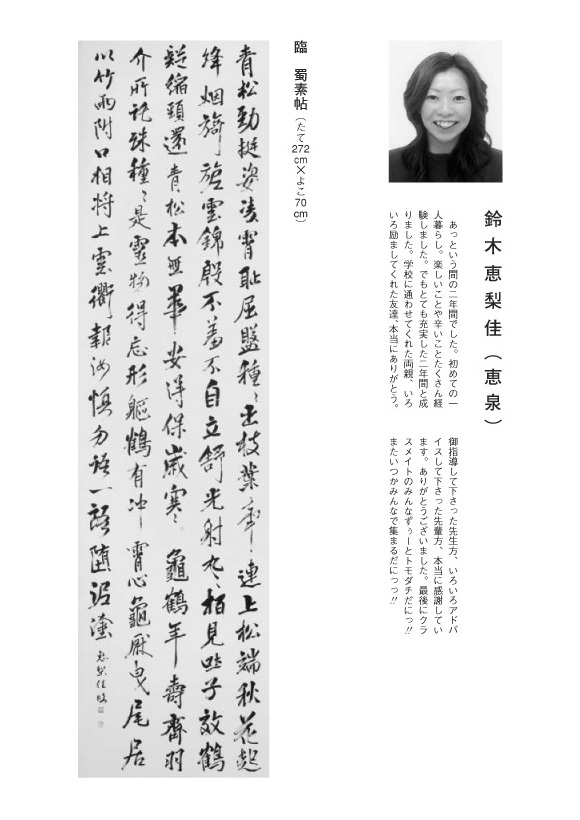 鈴木恵梨佳（恵泉）
あっという間の二年間でした。初めての一
人暮らし。楽しいことや辛いことたくさん経
験しました。でもとても充実した二年間と成
りました。学校に通わせてくれた両親、いろ
いろ励ましてくれた友達、本当にありがとう。
御指導して下さった先生方、いろいろアドバ
イスして下さった先輩方、本当に感謝してい
ます。ありがとうございました。最後にクラ
スメイトのみんなずぅーとトモダチだにっっ!!
またいつかみんなで集まるだにっっ!!
臨　蜀素帖（たて272cm×よこ70cm）
青松勁挺姿凌霄恥屈盤種〻出枝葉牽〻連上松端秋花起
絳烟旖旎雲錦殷不羞不自立舒光射丸〻栢見吐子效鶴
疑縮頸還青松本無華安得保歲寒〻龜鶴年壽齊羽
介所託殊種〻是靈物得忘形軀鶴有冲霄心龜厭曳尾居
以竹兩附口相將上雲衢報汝慎勿語一語墮泥塗
恵梨佳臨